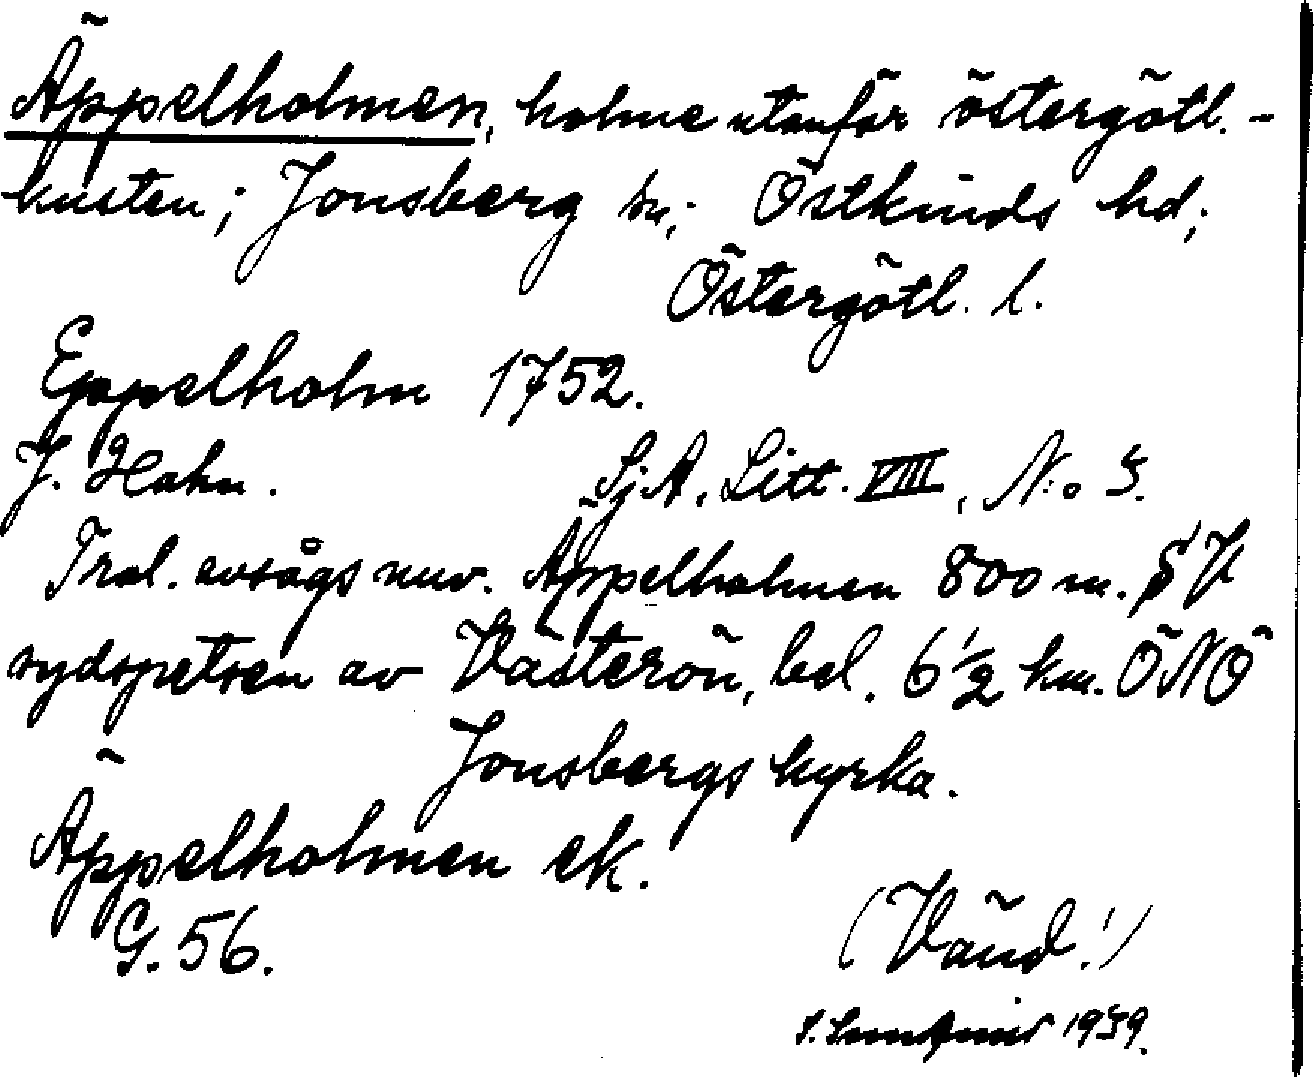 Äppelholmen, holme utanför östergötl.-
kusten; Jonsberg sn; Östkinds hd;
Östergötl. l.
Eppelholm 1752.
J. Hahn. SjA. Litt. VIII, N:o 5.
Trol. avsågs nuv. Äppelholmen 800 m. V
sydspetsen av Västerön, bel. 6 1/2 km. ÖNÖ
Jonsbergs kyrka.
Äppelholmen ek.
G. 56.
(Vänd!)
1939.